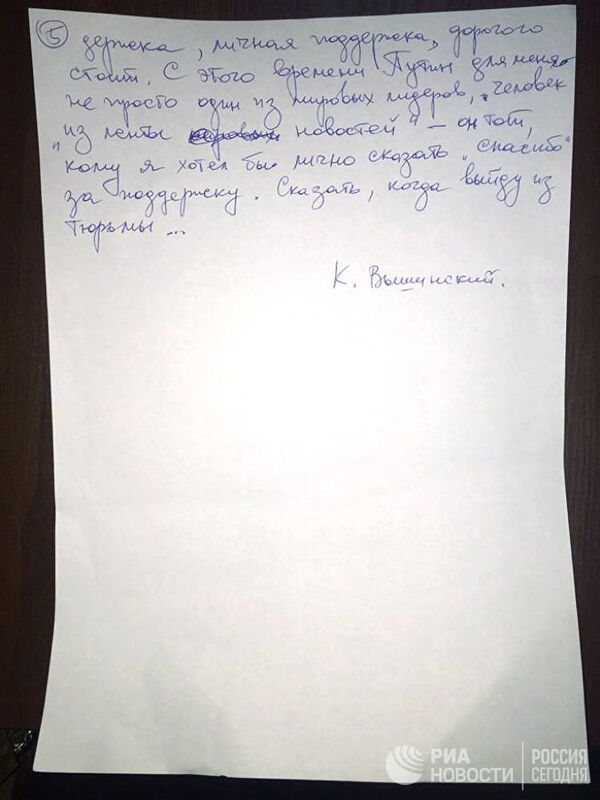 5 держка, личная поддержка, дорогого
стоит. С этого времени Путин для меня
не просто один из мировых лидеров, "человек
"из ленты новостей" – он тот,
кому я хотел бы лично сказать "спасибо"
за поддержку. Сказать, когда выйду из
тюрьмы ...
К. Вышинский.
РИА НОВОСТИ
РОССИЯ СЕГОДНЯ